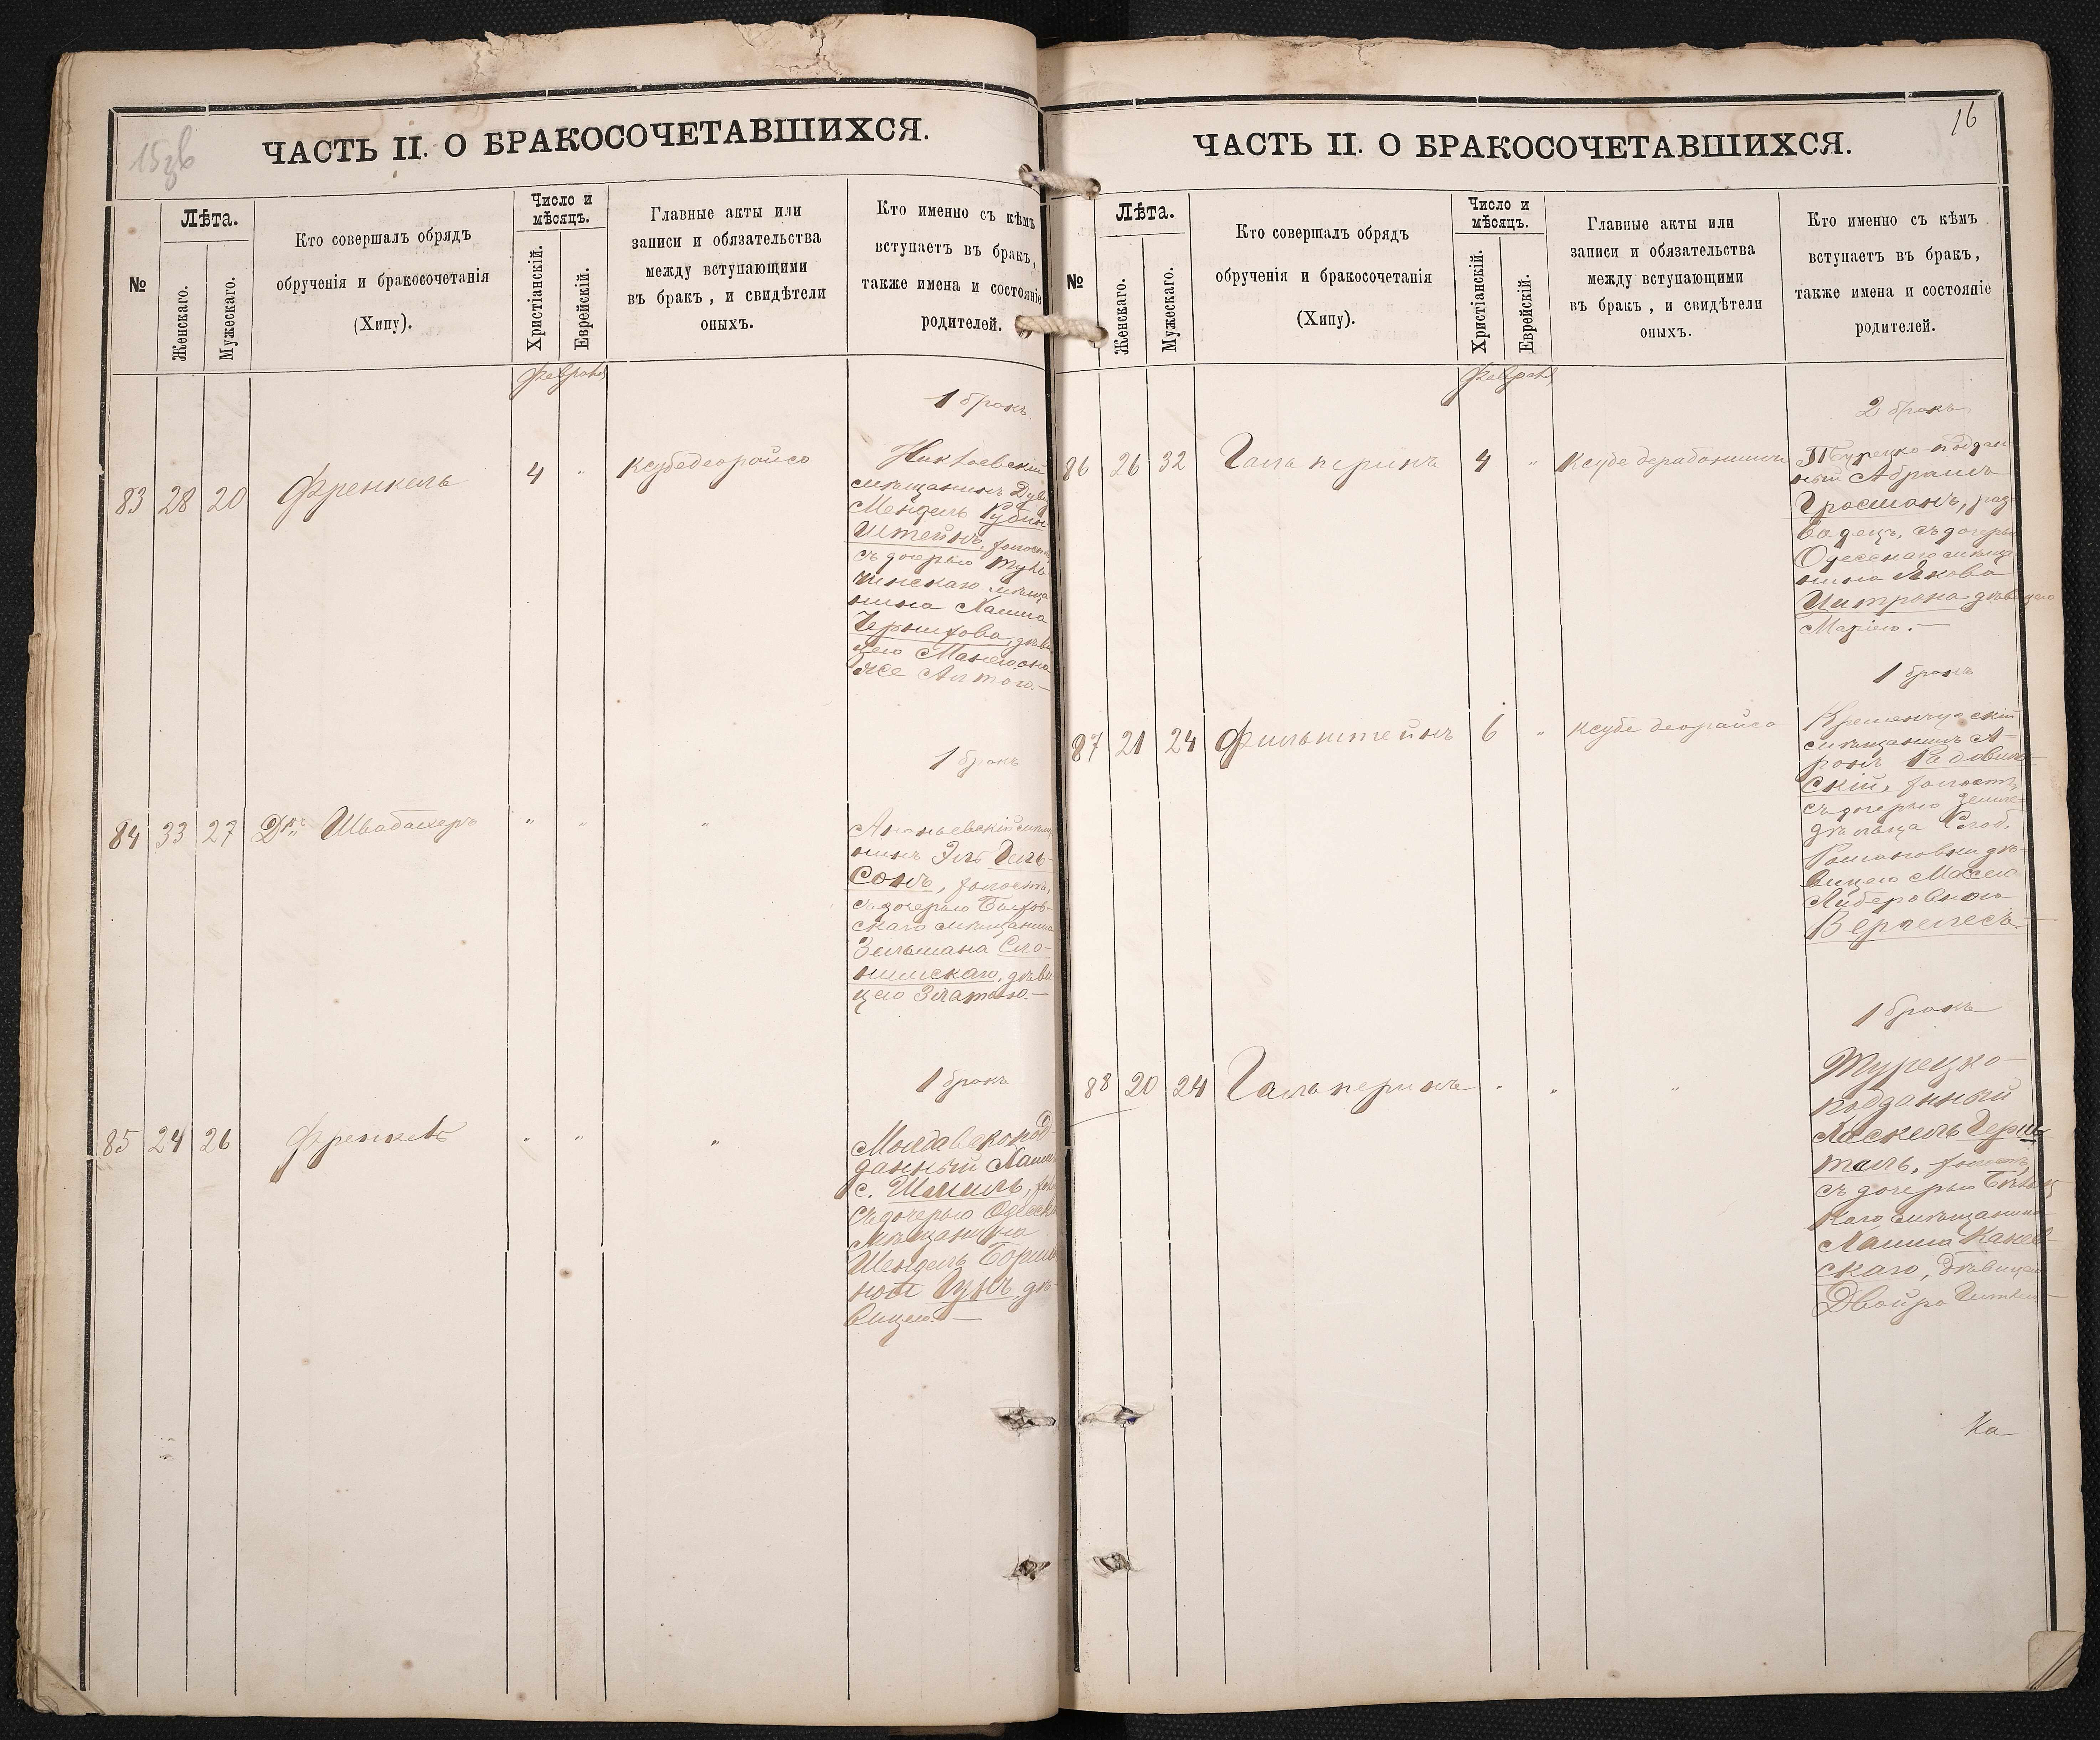 15зв
ЧАСТЬ II. О БРАКОСОЧЕТАВШИХСЯ.
№
Лѣта.
Женскаго.
Мужескаго.
Кто совершалъ обрядъ
обрученія и бракосочетанія
(Хипу).
Число и
мѣсяцъ.
Христіанскій.
Еврейскій.
Главные акты или
записи и обязательства
между вступающими
въ бракъ, и свидѣтели
оныхъ.
Кто именно съ кѣмъ
вступаетъ въ бракъ,
также имена и состояніе
родителей.
Февраль
1 бракъ
83 28 20 Френкель 4 " Ксубедеорайсо
Николаевскій
мѣщанинъ Дувидъ
Мендель Рубин
штейнъ, холостъ
съ дочерью Туль
чинскаго мѣща
нина Хаима
дѣви
цею Манею она
же
1 бракъ
84 33 27 Дръ Швабахеръ " " "
Ананьевскій мѣща
нинъ Эль Гель
сонъ, холостъ,
съ дочерью Быхов-
скаго мѣщанина
Зельмана Сло-
нимскаго, дѣви
цею Златою.—
1 бракъ
85 24 26 Френкель " " "
Молдавскопод-
данный Хаим
с. Шмиль,
съ дочерью Одесск
мѣщанина
Шендель
ной дѣ-
вицею.—
16
ЧАСТЬ II. О БРАКОСОЧЕТАВШИХСЯ.
№
Лѣта.
Женскаго.
Мужескаго.
Кто совершалъ обрядъ
обрученія и бракосочетанія
(Хипу).
Число и
мѣсяцъ.
Христіанскій.
Еврейскій.
Главные акты или
записи и обязательства
между вступающими
въ бракъ, и свидѣтели
оныхъ.
Кто именно съ кѣмъ
вступаетъ въ бракъ,
также имена и состояніе
родителей.
Февраль
2 бракъ
86 26 32 Гальперинъ 4 " Ксубе дерабонимъ
Турецко-поддан-
ный Абрамъ
Гросманъ, раз-
водецъ, съ дочерью
Одесскаго мѣща
нина Якова
Цитрона дѣвицею
Маріею.—
1 бракъ
87 21 24 Фильштейнъ 6 " Ксубе деорайсо
Кременчугскій
мѣщанинъ А-
ронъ Радовиль-
скій, холостъ,
съ дочерью земле-
дѣльца Слоб.
Романовки дѣ-
вицею Массею
Лейберовною
1 бракъ
88 20 24 Гальперинъ " " "
Турецко-
подданный
Хаскель Герш
таль, холостъ,
съ дочерью
каго мѣщанина
Хаима Канев-
скаго, дѣвицею
Двойра
Ка